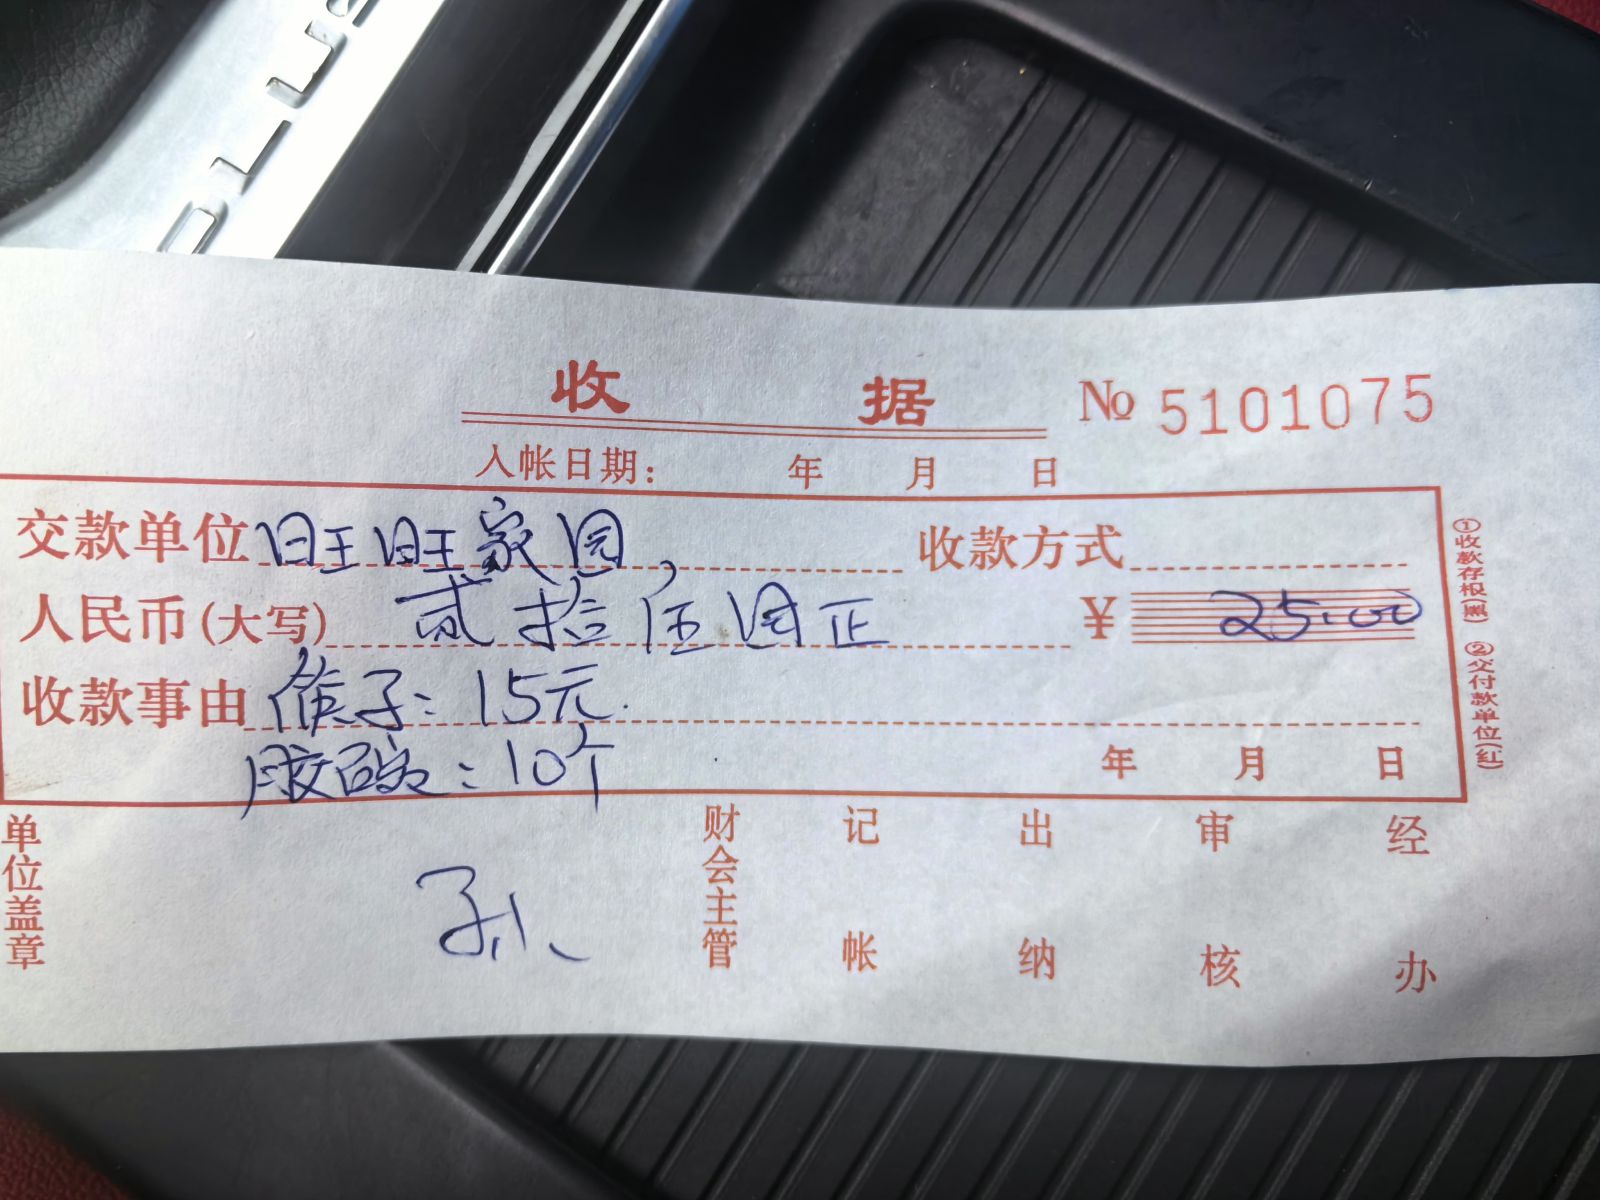 PLUS
收 据 № 5101075
入帐日期: 年 月 日
交款单位 旺旺家园, 收款方式
人民币(大写) 贰拾伍园正 ¥ 25.00
收款事由 篌子: 15元.
胶碗: 10个
年 月 日
①收款存根(黑) ②交付款单位(红)
单位盖章
财会主管 记帐 出纳 审核 经办